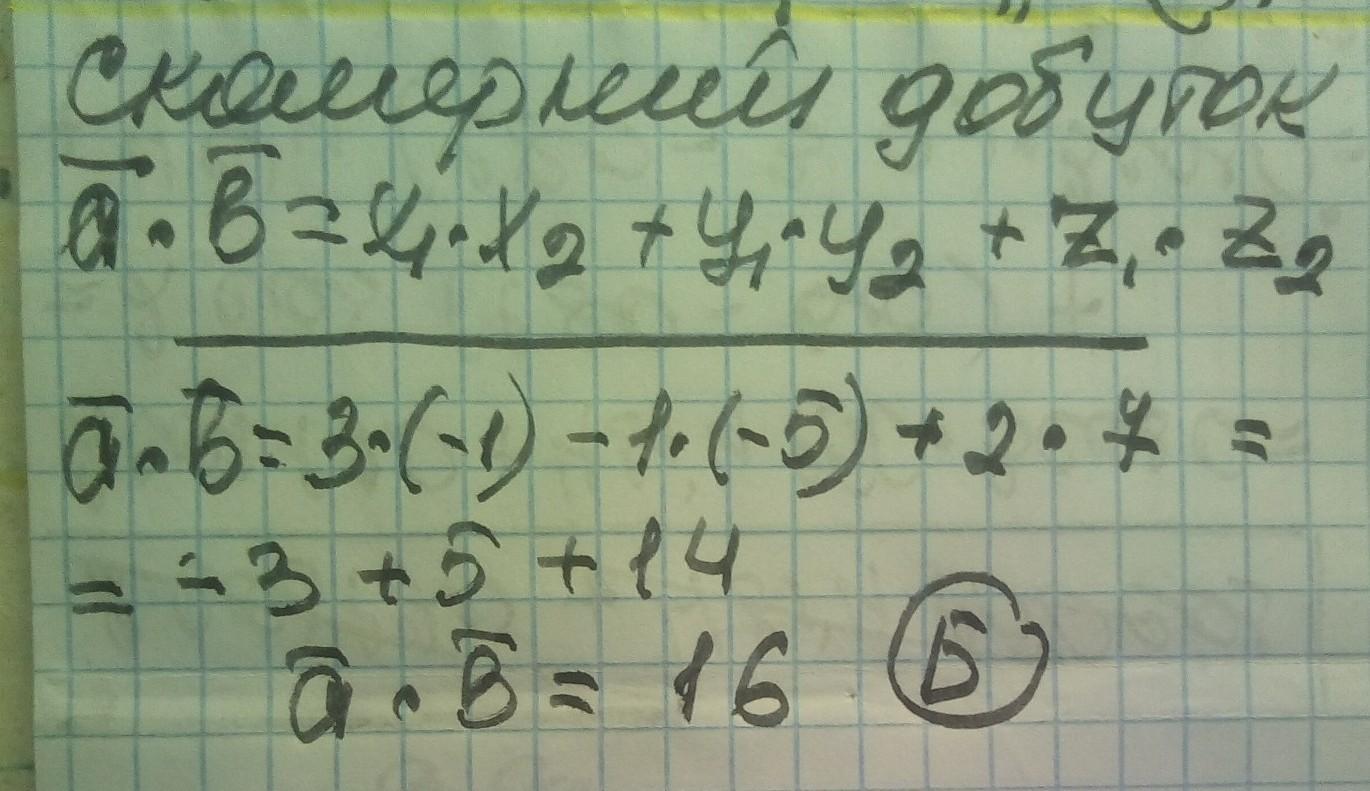 Скалярний добуток
a̅ · b̅ = x₁ · x₂ + y₁ · y₂ + z₁ · z₂
a̅ · b̅ = 3 · (-1) - 1 · (-5) + 2 · 7 =
= - 3 + 5 + 14
a̅ · b̅ = 16 Б